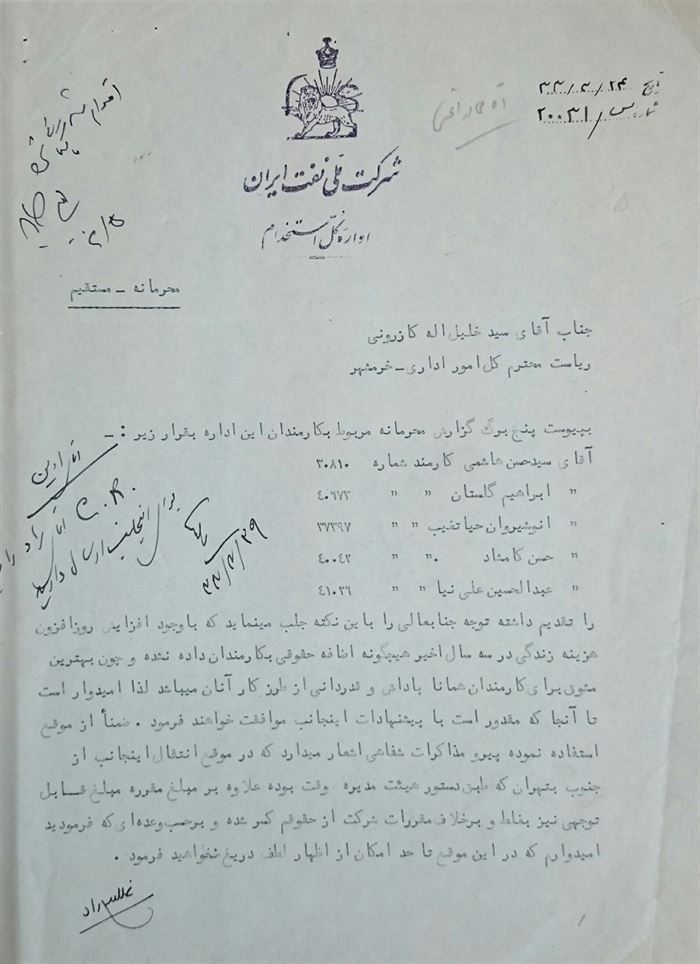 تاریخ ۳۳/۳/۲۴
شماره س/۲۰۰۳۱
شرکت ملی نفت ایران
اداره کل استخدام
محرمانه - مستقیم
جناب آقای سید خلیل اله کازرونی
ریاست محترم کل امور اداری - خرمشهر
بپیوست پنج برگ گزارش محرمانه مربوط بکارمندان این اداره بقرار زیر : -
آقای سیدحسن هاشمی کارمند شماره ۳۰۸۱۰
" ابراهیم گلستان " " ۴۰۶۷۳
" انوشیروان حیاتغیب " " ۳۷۳۹۷
" حسن کامشاد " " ۴۰۰۴۲
" عبدالحسین علی نیا " " ۴۱۰۳۶
را تقدیم داشته توجه جنابعالی را باین نکته جلب مینماید که باوجود افزایش روزافزون
هزینه زندگی در سه سال اخیر هیچگونه اضافه حقوقی بکارمندان داده نشده و چون بهترین
مشوق برای کارمندان همانا پاداش و قدردانی از طرز کار آنان میباشد لذا امیدوار است
تا آنجا که مقدور است با پیشنهادات اینجانب موافقت خواهند فرمود . ضمناً از موقع
استفاده نموده پیرو مذاکرات شفاهی اشعار میدارد که در موقع انتقال اینجانب از
جنوب بتهران که طبق دستور هیئت مدیره وقت بوده علاوه بر مبلغ مقرره مبلغ قابل
توجهی نیز بغلط و برخلاف مقررات شرکت از حقوقم کسر شده و برحسب وعده ای که فرمودید
امیدوارم که در این موقع تا حد امکان از اظهار لطف دریغ نخواهید فرمود .
۳۳/۳/۲۹